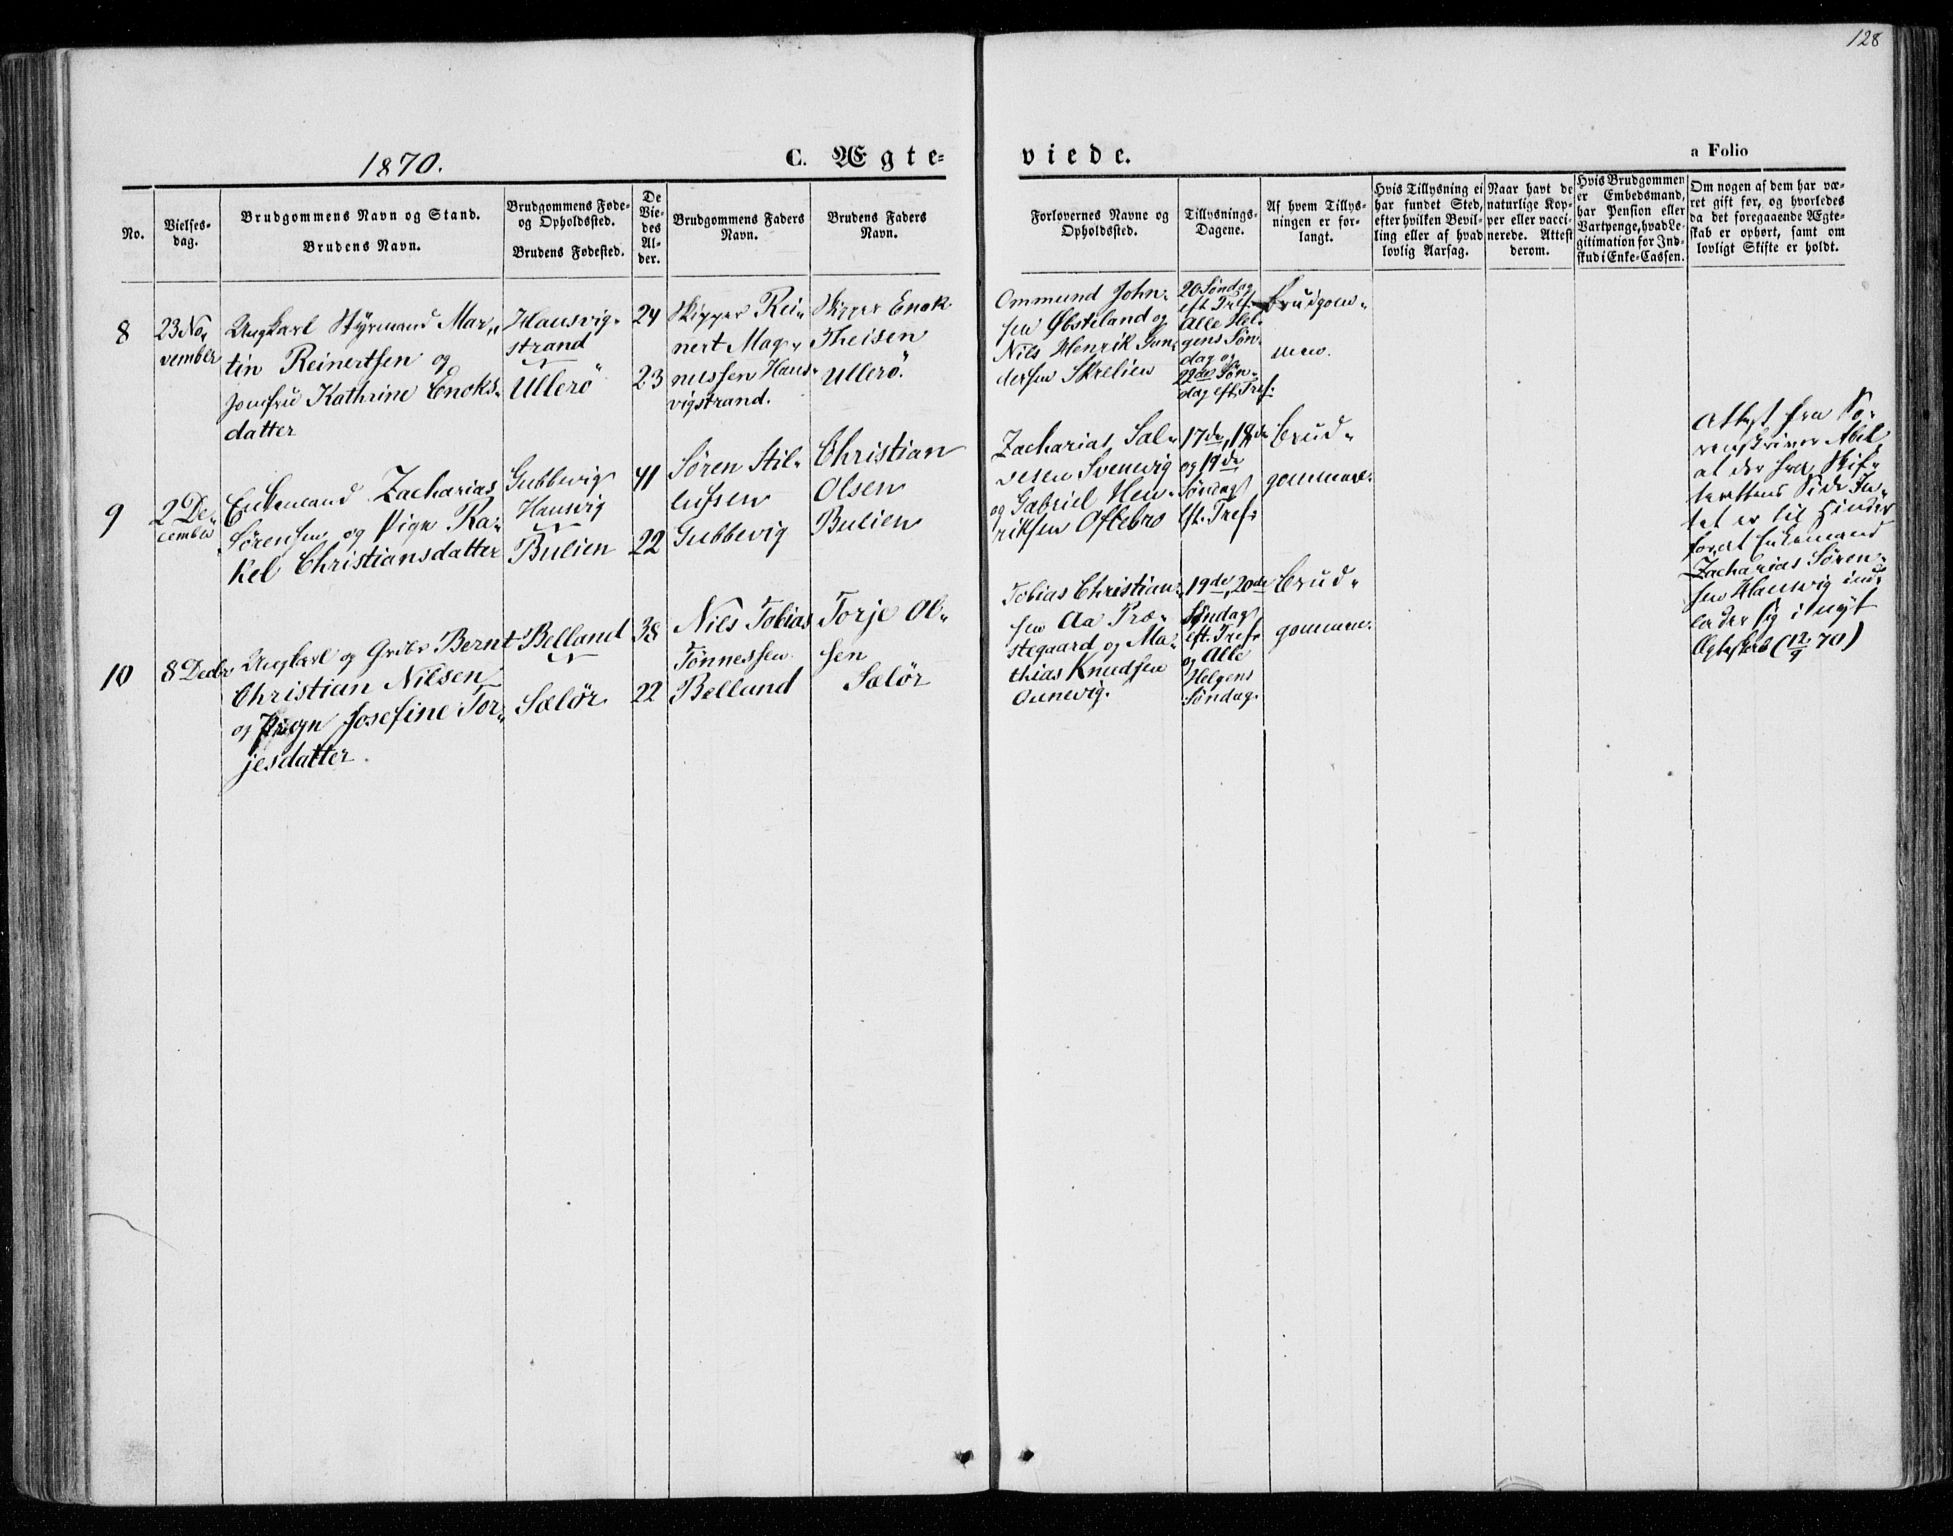 128
1870.
C. Ægte=
viede.
a Folio
No.
Vielses=
dag.
Brudgommens Navn og Stand.
Brudens Navn.
Brudgommens Føde=
og Opholdssted.
Brudens Fødested.
De
Vie=
des
Al=
der.
Brudgommens Faders
Navn.
Brudens Faders
Navn.
Forlovernes Navne og
Opholdssted.
Tillysnings=
Dagene.
Af hvem Tillys=
ningen er for=
langt.
Hvis Tillysning ei
har fundet Sted,
efter hvilken Bevil=
ling eller af hvad
lovlig Aarsag.
Naar havt de
naturlige Kop=
per eller vacci=
nerede. Attest
derom.
Hvis Brudgommen
er Embedsmand,
har Pension eller
Vartpenge, hvad Le=
gitimation for Ind=
skud i Enke=Cassen.
Om nogen af dem har væ=
ret gift før, og hvorledes
da det foregaaende Ægte=
skab er ophørt, samt om
lovligt Skifte er holdt.
8
23 No=
vember
Ungkarl Styrmand Mar=
tin Reinertsen og
Jomfru Kathrine Enoks=
datter
Hausvig=
strand
Ullerö
24
23
Skipper Rei=
nert Mag=
nussen Haus=
vigstrand.
Skipper Enok
Theisen
Ullerö.
Ommund John=
sen Øbsteland og
Nils Henrik Gun=
dersen Skrelien
20 Søndag
eft. Tref.
Alle Hel=
gens Søn=
dag og
22de Søn=
dag eft. Tref.
Brudgom=
men.
9
2 De=
cember
Enkemand Zacharias
Sørensen og Pige Ra=
kel Christiansdatter
Gubbevig
Hausvig
Bulien
41
22
Søren Stil=
lufsen
Gubbevig
Christian
Olsen
Bulien
Zacharias Sal=
vesen Svenevig
og Gabriel Hen=
riksen Oftebro
17de, 18de
og 19de
Søndag
eft. Tref.
Brud=
gommen.
Attest fra So=
renskriver Abel
at der fra Skif=
terettens Side In=
tet er til Hinder
for at Enkemand
Zacharias Søren=
sen Hausvig ind=
lader sig i nyt
Ægteskab (12/9 70)
10
8 Decbr
Ungkarl og Grdbr Bernt
Christian Nilsen
og Pigen Josefine Tor=
jesdatter.
Belland
Sælør
38
22
Nils Tobias
Tønnessen
Belland
Torje Ol=
sen
Sælør
Tobias Christian=
sen Aa Præ=
stegaard og Ma=
thias Knudsen
19de, 20de
Søndag
eft. Tref.
og Alle
Helgens
Søndag.
Brud=
gommen.